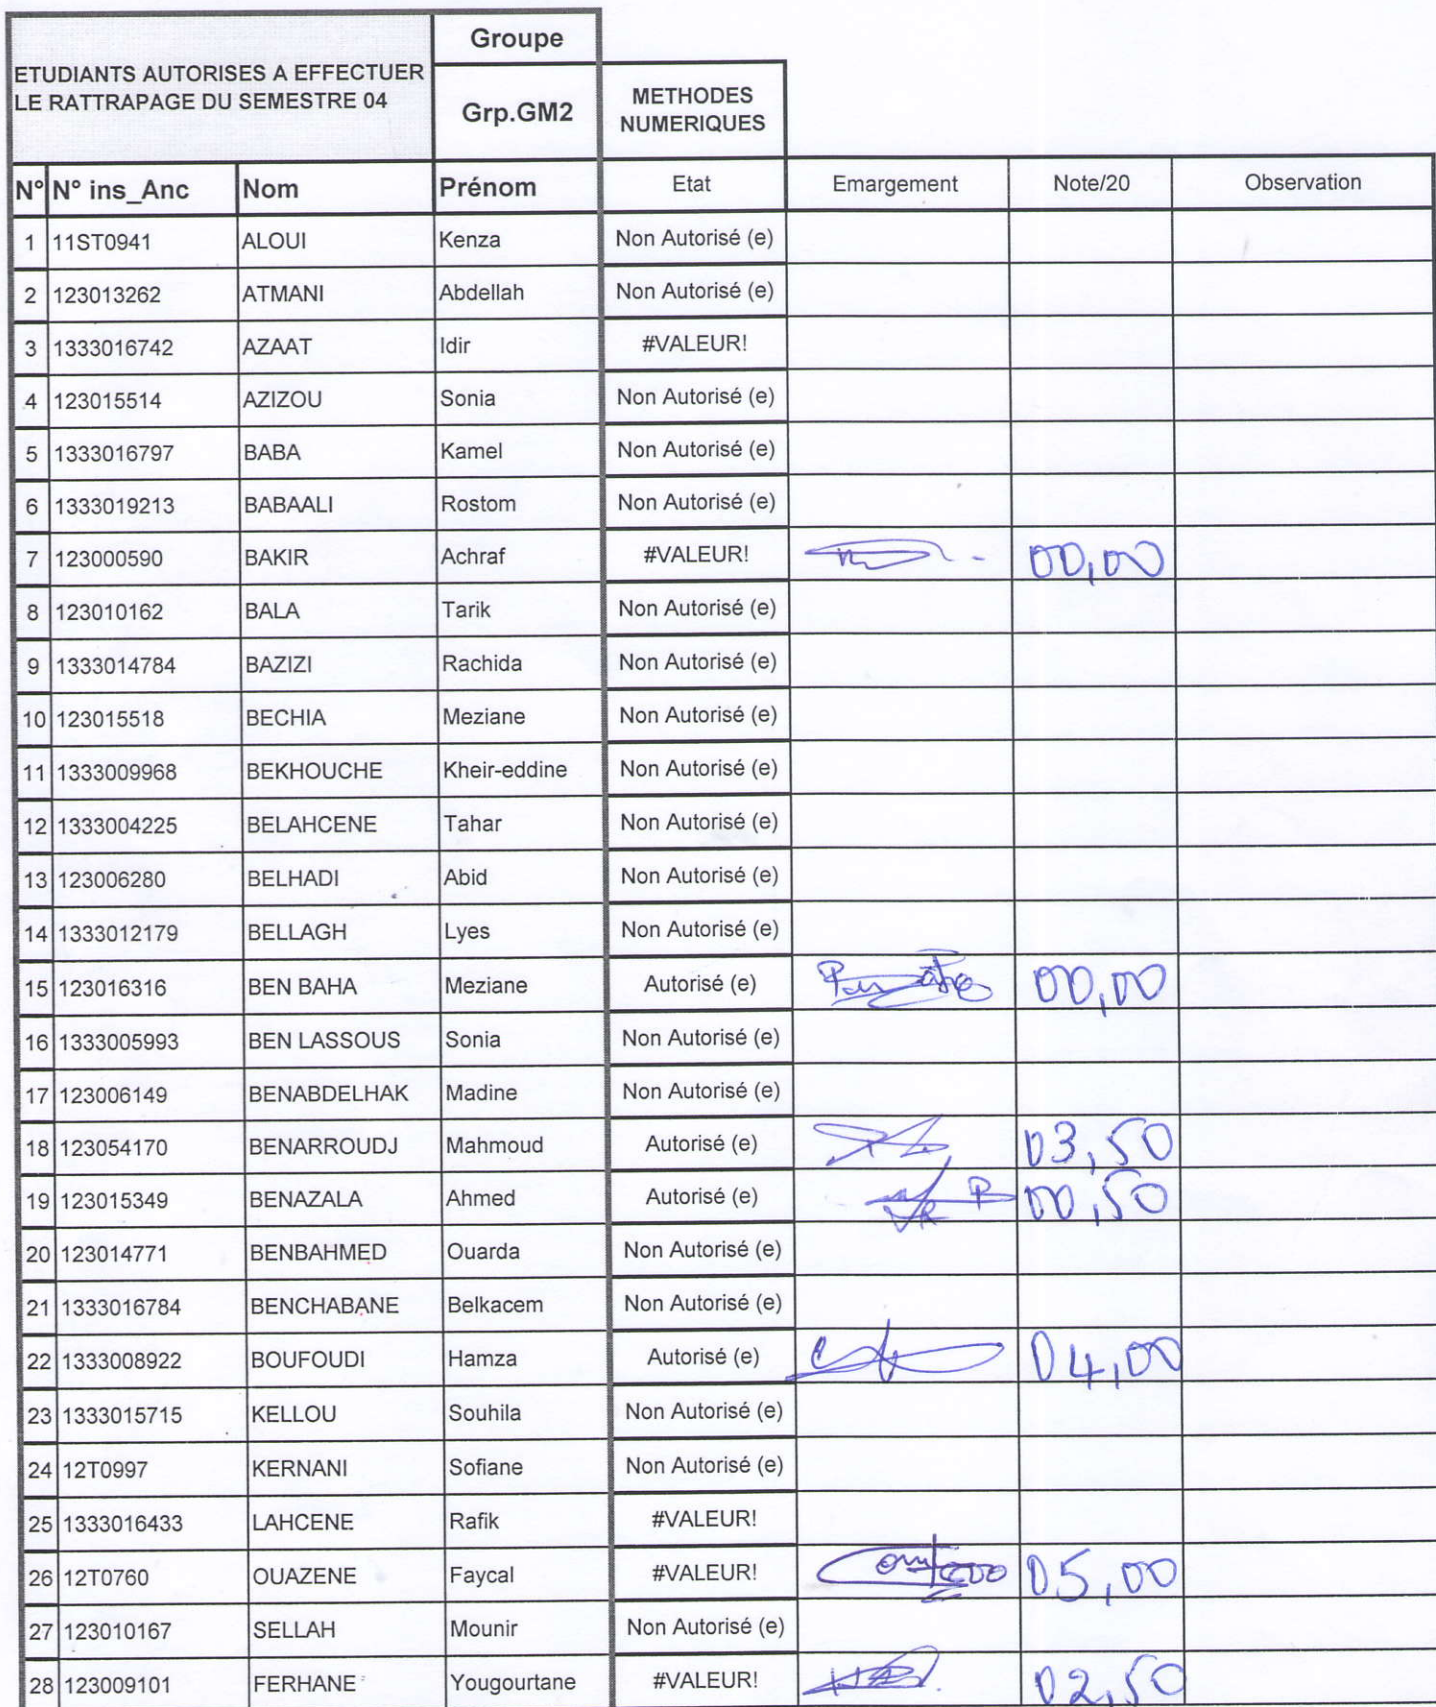 Groupe
ETUDIANTS AUTORISES A EFFECTUER
LE RATTRAPAGE DU SEMESTRE 04
Grp.GM2
METHODES
NUMERIQUES
N° N° ins_Anc Nom Prénom Etat Emargement Note/20 Observation
1 11ST0941 ALOUI Kenza Non Autorisé (e)
2 123013262 ATMANI Abdellah Non Autorisé (e)
3 1333016742 AZAAT Idir #VALEUR!
4 123015514 AZIZOU Sonia Non Autorisé (e)
5 1333016797 BABA Kamel Non Autorisé (e)
6 1333019213 BABAALI Rostom Non Autorisé (e)
7 123000590 BAKIR Achraf #VALEUR! 00,00
8 123010162 BALA Tarik Non Autorisé (e)
9 1333014784 BAZIZI Rachida Non Autorisé (e)
10 123015518 BECHIA Meziane Non Autorisé (e)
11 1333009968 BEKHOUCHE Kheir-eddine Non Autorisé (e)
12 1333004225 BELAHCENE Tahar Non Autorisé (e)
13 123006280 BELHADI Abid Non Autorisé (e)
14 1333012179 BELLAGH Lyes Non Autorisé (e)
15 123016316 BEN BAHA Meziane Autorisé (e) 00,00
16 1333005993 BEN LASSOUS Sonia Non Autorisé (e)
17 123006149 BENABDELHAK Madine Non Autorisé (e)
18 123054170 BENARROUDJ Mahmoud Autorisé (e) 03,50
19 123015349 BENAZALA Ahmed Autorisé (e) 00,50
20 123014771 BENBAHMED Ouarda Non Autorisé (e)
21 1333016784 BENCHABANE Belkacem Non Autorisé (e)
22 1333008922 BOUFOUDI Hamza Autorisé (e) 04,00
23 1333015715 KELLOU Souhila Non Autorisé (e)
24 12T0997 KERNANI Sofiane Non Autorisé (e)
25 1333016433 LAHCENE Rafik #VALEUR!
26 12T0760 OUAZENE Faycal #VALEUR! 05,00
27 123010167 SELLAH Mounir Non Autorisé (e)
28 123009101 FERHANE Yougourtane #VALEUR! 02,50